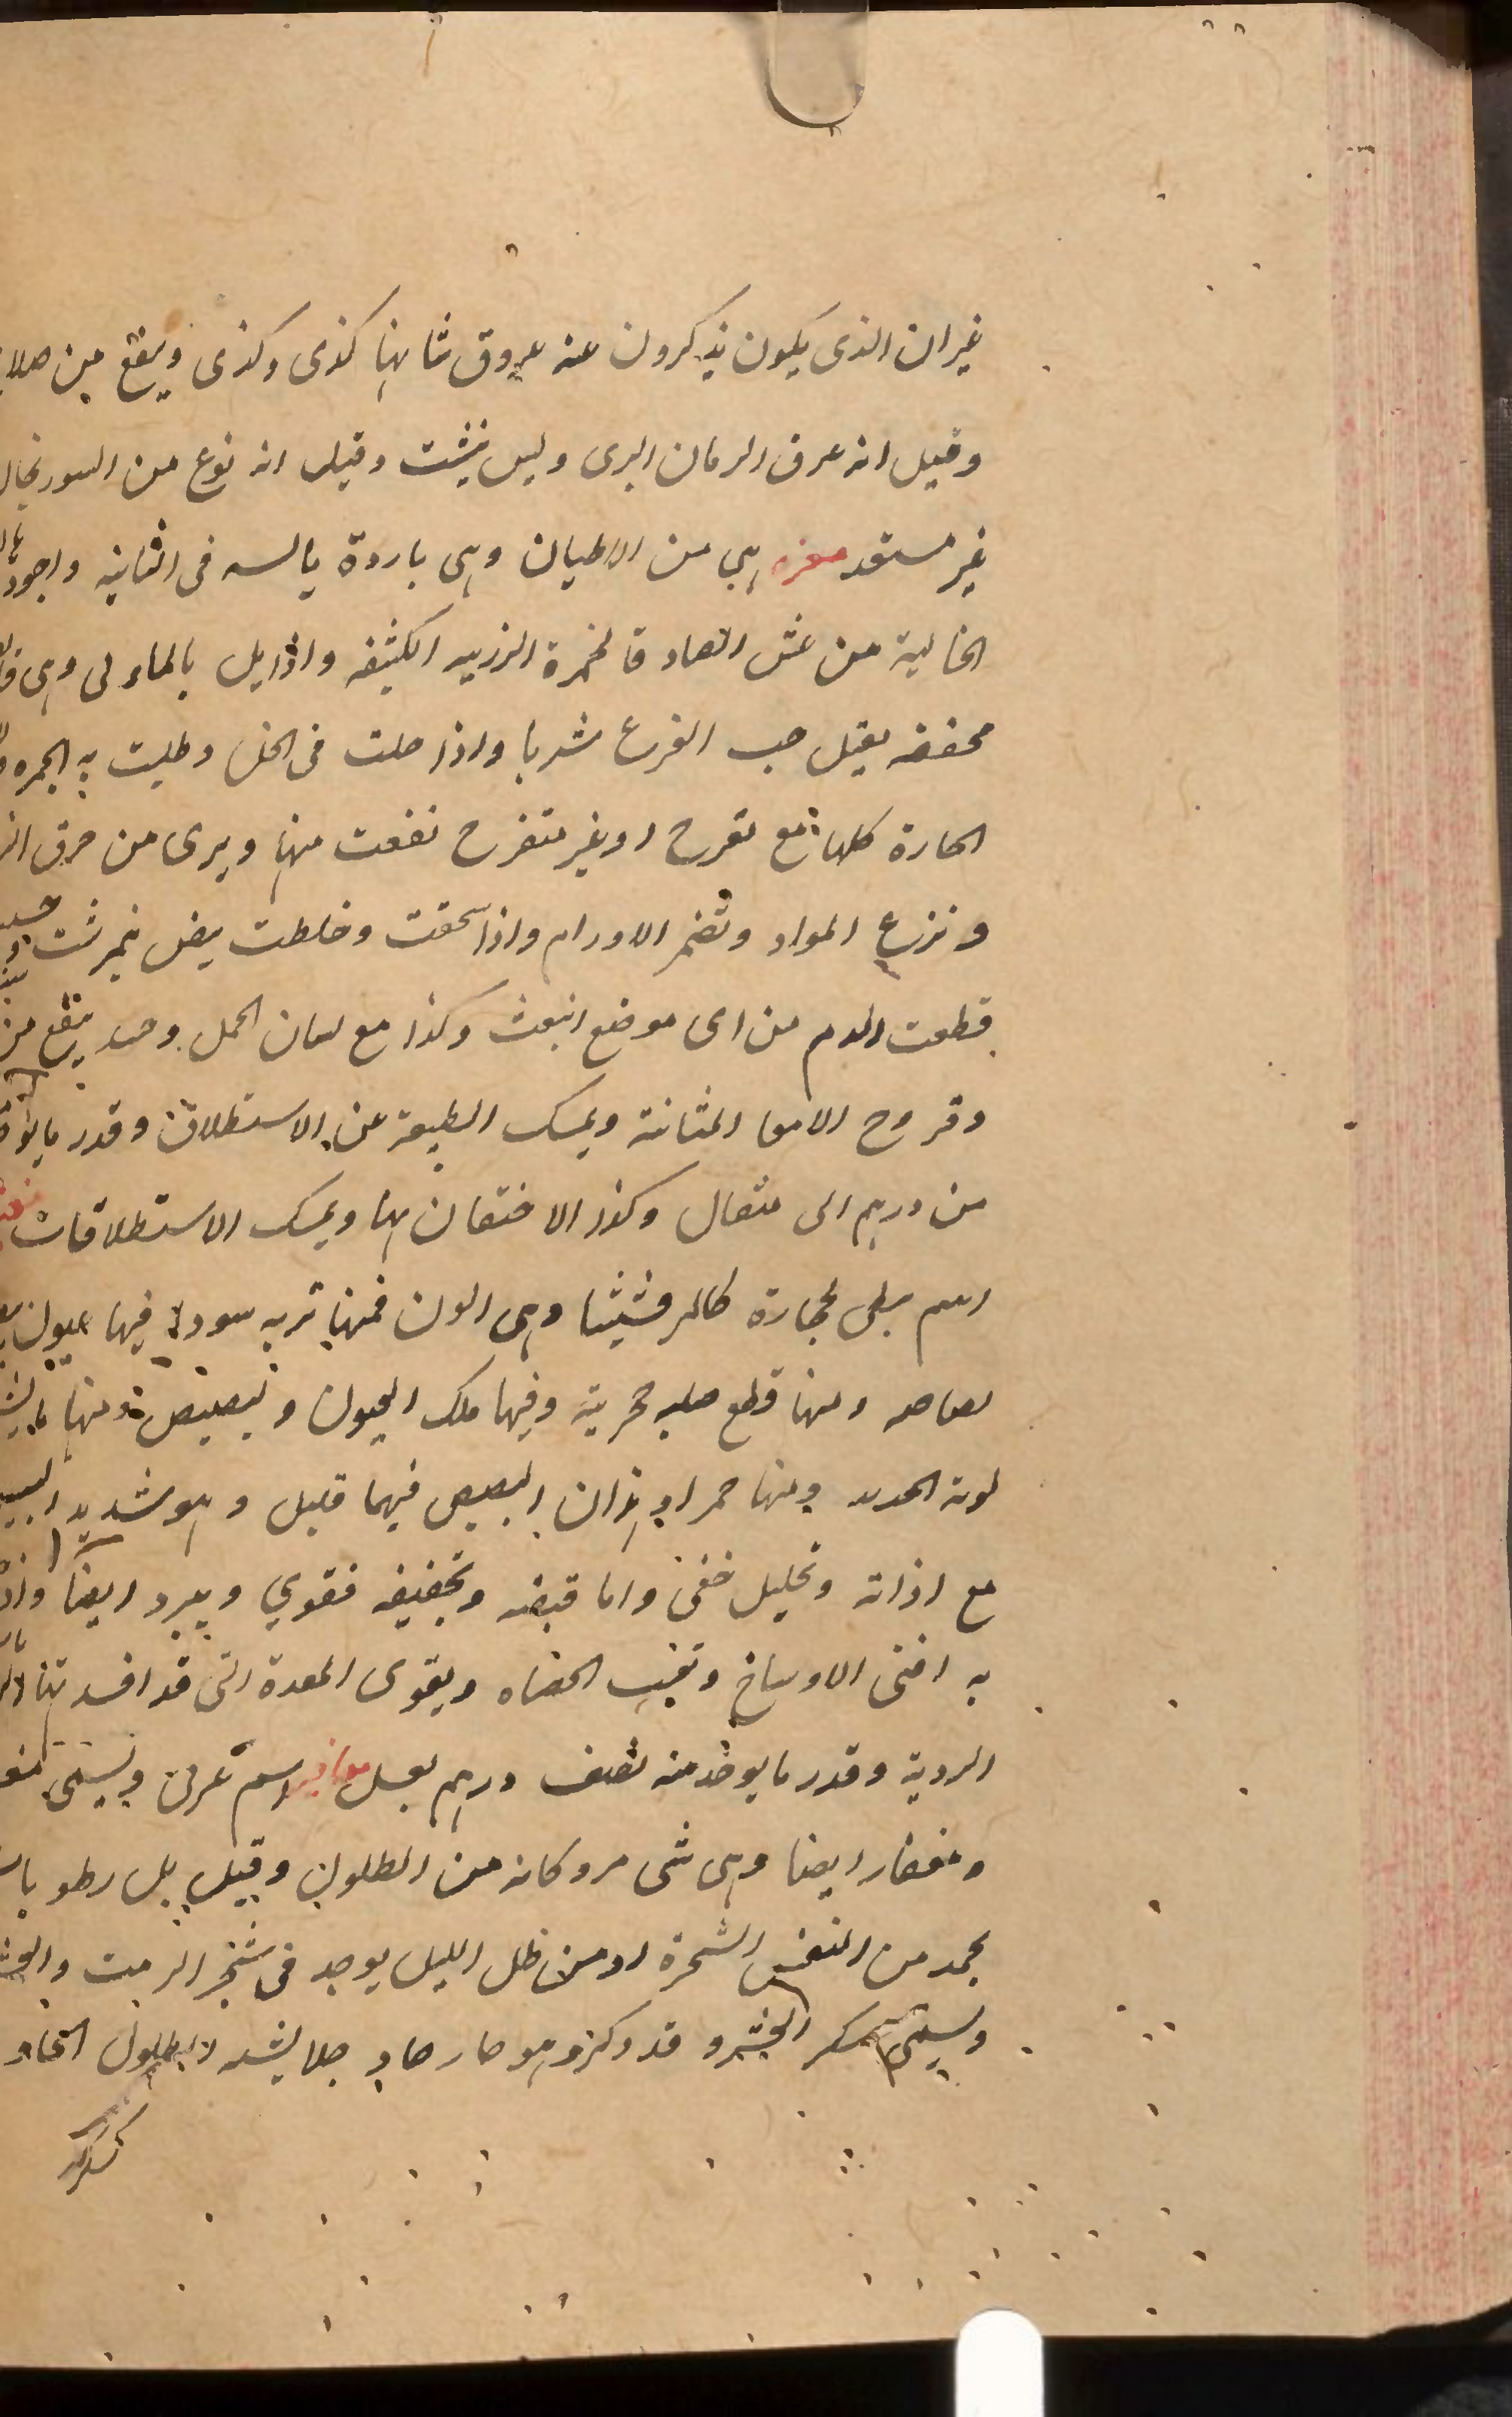 غير ان الذى يكون يذكرون عنه عروق شانها كذى وكذى وينفع من صلا
وقيل انه عرق الرمان البرى وليس يثبت وقيل انه نوع من السورنجان
غير مستعد مغره هي من الاطيان وهى باردة يابسه فى الثانيه واجودها
الخالية من غش الصادقا لحمرة الكثيفه واذا بل بالماء وهى
مجففه يقتل حب القرع شربا واذا حلت فى الخل وطليت به الجمره
الحارة كلها مع تقرح او بغير متقرح نفعت منها ويرى من حرق النا
و نزع المواد وتضمر الاورام واذا سحقت وخلطت ببيض نيمرشت
قطعت الدم من اى موضع انبعث وكذا مع لسان الحمل وحده ينفع من
وقروح الامعا المثانة ويمسك الطبيعة عن الاستطلاق وقدر ما يوخذ
من درهم الى مثقال وكذا الاحتقان بها ويمسك الاستطلاقات
اسم على حجارة كالمرقشيثا وهى الوان فمنها تربه سودا فيها عيون
بصاصه ومنها قطع صلبه حجرية وفيها تلك العيون و تبصبص ومنها ما يشبه
لونه الحديد ومنها حمرا وغير ان البصيص فيها قليل و هو شديد
مع اذاته وتحليل خفى واما قبضه وتجفيفه فقوي ويبرد ايضا واذا
به افنى الاوساخ وتفتت الحصاه ويقوى المعدة التى قد افسدتها
الردية وقدر ما يوخذ منه نصف درهم بعسل مغافير اسم عربى ويسمى
ومغفار ايضا وهى شى مر وكانه من الطلول وقيل بل رطوبات
يجمد من نفس الشجرة او من ظل الليل يوجد فى شجر الرمث والعشر
ويسمى سكر العشر و قد ذكر وهو حار حاد جلا يشبه لا بطلول الحاد